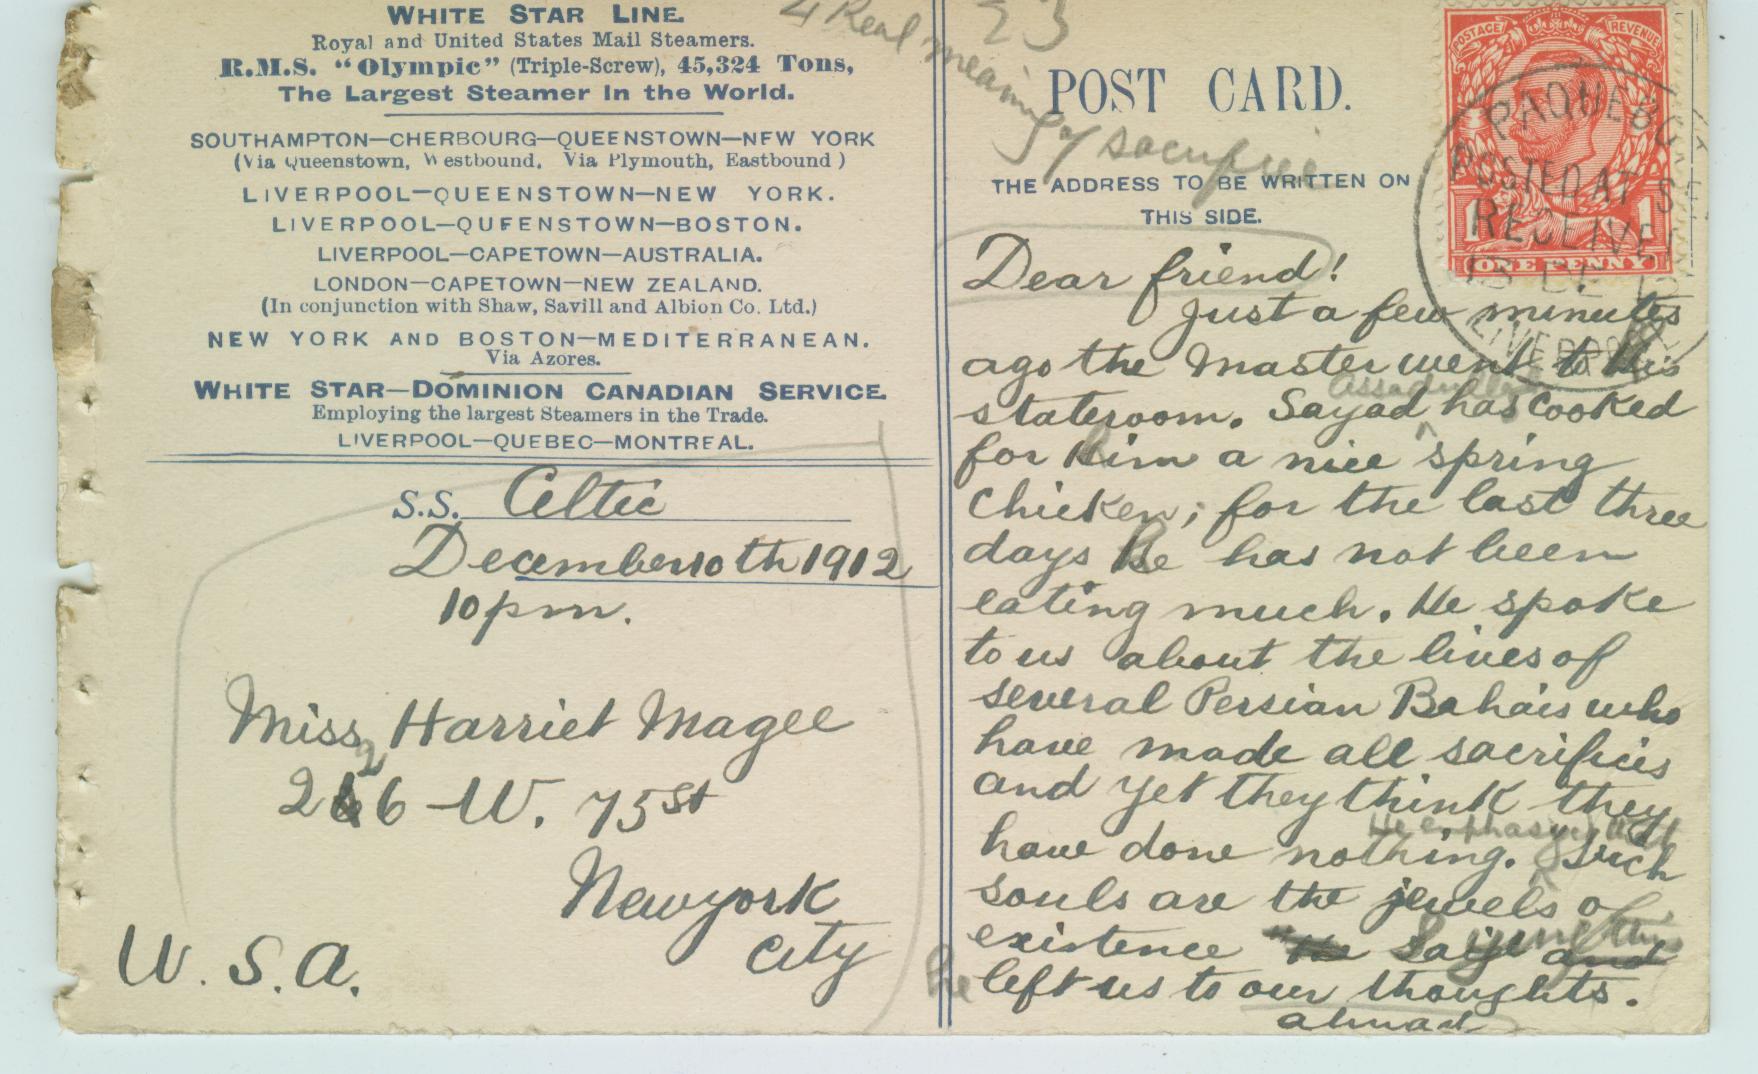 WHITE STAR LINE.
Royal and United States Mail Steamers.
R.M.S. "Olympic" (Triple-Screw), 45,324 Tons,
The Largest Steamer in the World.
SOUTHAMPTON—CHERBOURG—QUEENSTOWN—NEW YORK
(Via Queenstown, Westbound, Via Plymouth, Eastbound)
LIVERPOOL—QUEENSTOWN—NEW YORK.
LIVERPOOL—QUEENSTOWN—BOSTON.
LIVERPOOL—CAPETOWN—AUSTRALIA.
LONDON—CAPETOWN—NEW ZEALAND.
(In conjunction with Shaw, Savill and Albion Co. Ltd.)
NEW YORK AND BOSTON—MEDITERRANEAN.
Via Azores.
WHITE STAR—DOMINION CANADIAN SERVICE.
Employing the largest Steamers in the Trade.
LIVERPOOL—QUEBEC—MONTREAL.
S.S. Celtic
December 10th 1912
10 pm.
Miss Harriet Magee
226 W. 75st
Newyork
City
U.S.A.
4 Real meaning of sacrifice
23
POST CARD.
THE ADDRESS TO BE WRITTEN ON
THIS SIDE.
POSTAGE REVENUE
1 1
ONE PENNY
PAQUEBO
POSTED AT SE
RECEIVE
13 DE 12
LIVERPOOL
Dear friend!
Just a few minutes
ago the Master went to his
stateroom. Sayad has cooked
for Him a nice spring
chicken; for the last three
days He has not been
eating much. He spoke
to us about the lives of
several Persian Bahais who
have made all sacrifices
and yet they think they
He
have done nothing. Such
souls are the jewels of
existence
He left us to our thoughts.
ahmad